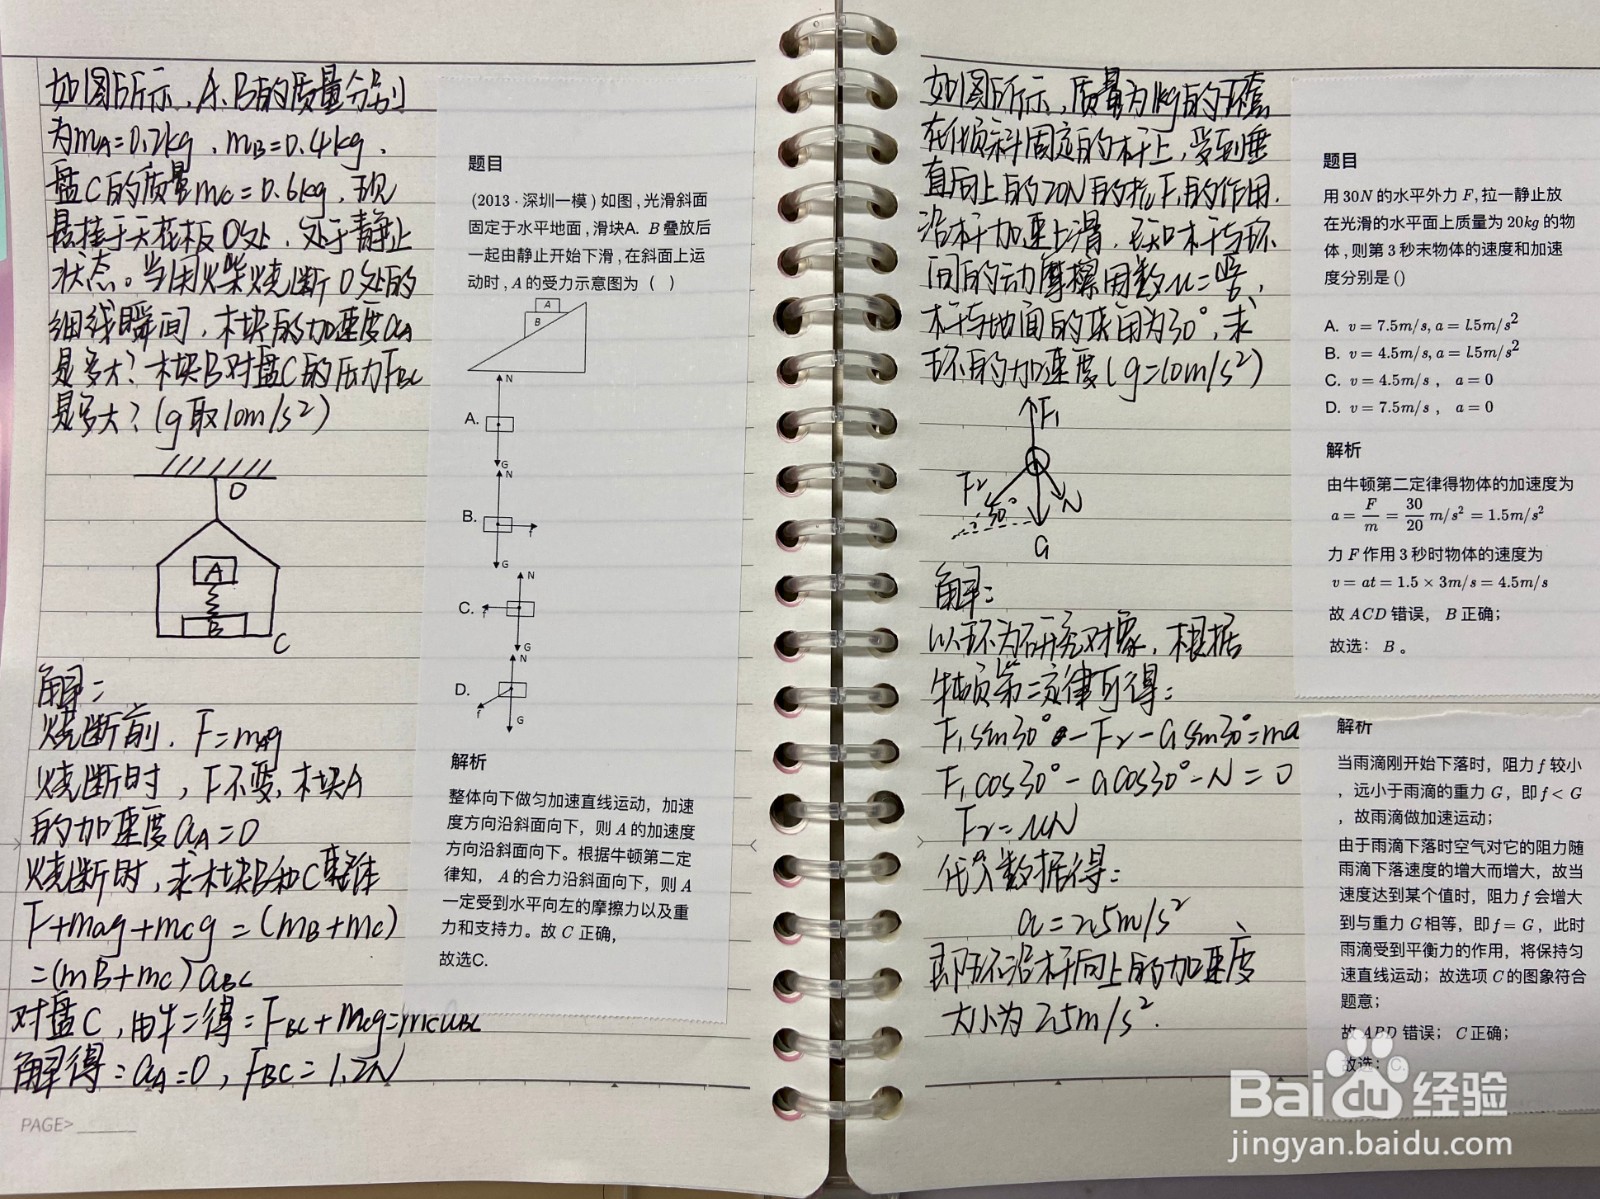 如图所示,A、B的质量分别
为mA=0.2kg,mB=0.4kg,
盘C的质量mc=0.6kg,现
悬挂于天花板O处,处于静止
状态。当用火柴烧断O处的
细线瞬间,木块的加速度aA
是多大?木块B对盘C的压力FBC
是多大?(g取10m/s²)
O
A
B
C
解:
烧断前,F=mAg
烧断时,F不变,木块A
的加速度aA=0
烧断时,求木块B和C整体
F+mag+mcg=(mB+mc)
=(mB+mc)aBC
对盘C,由牛二得:FBC+mcg=mcaBC
解得:aA=0,FBC=1.2N
PAGE>
题目
(2013·深圳一模)如图,光滑斜面
固定于水平地面,滑块A.B叠放后
一起由静止开始下滑,在斜面上运
动时,A的受力示意图为( )
A
B
A.
N
G
B.
N
f
G
C.
N
f
G
D.
N
f
G
解析
整体向下做匀加速直线运动,加速
度方向沿斜面向下,则A的加速度
方向沿斜面向下。根据牛顿第二定
律知,A的合力沿斜面向下,则A
一定受到水平向左的摩擦力以及重
力和支持力。故C正确,
故选C.
如图所示,质量为1kg的环套
在倾斜固定的杆上,受到垂
直向上的20N的拉F1的作用.
沿杆加速上滑,已知杆与环
间的动摩擦因数μ=
杆与地面的夹角为30°,求
环的加速度(g=10m/s²)
F1
F2
30°
N
G
解:
以环为研究对象,根据
牛顿第二定律可得:
F1sin30°-F2-Gsin30°=ma
F1cos30°-Gcos30°-N=0
F2=μN
代入数据得:
a=2.5m/s²
即环沿杆向上的加速度
大小为2.5m/s².
题目
用30N的水平外力F,拉一静止放
在光滑的水平面上质量为20kg的物
体,则第3秒末物体的速度和加速
度分别是()
A. v=7.5m/s,a=1.5m/s²
B. v=4.5m/s,a=1.5m/s²
C. v=4.5m/s, a=0
D. v=7.5m/s, a=0
解析
由牛顿第二定律得物体的加速度为
a=F/m=30/20 m/s²=1.5m/s²
力F作用3秒时物体的速度为
v=at=1.5×3m/s=4.5m/s
故ACD错误,B正确;
故选:B。
解析
当雨滴刚开始下落时,阻力f较小
,远小于雨滴的重力G,即f<G
,故雨滴做加速运动;
由于雨滴下落时空气对它的阻力随
雨滴下落速度的增大而增大,故当
速度达到某个值时,阻力f会增大
到与重力G相等,即f=G,此时
雨滴受到平衡力的作用,将保持匀
速直线运动;故选项C的图象符合
题意;
故ABD错误;C正确;
故选:C.
Baidu经验
jingyan.baidu.com